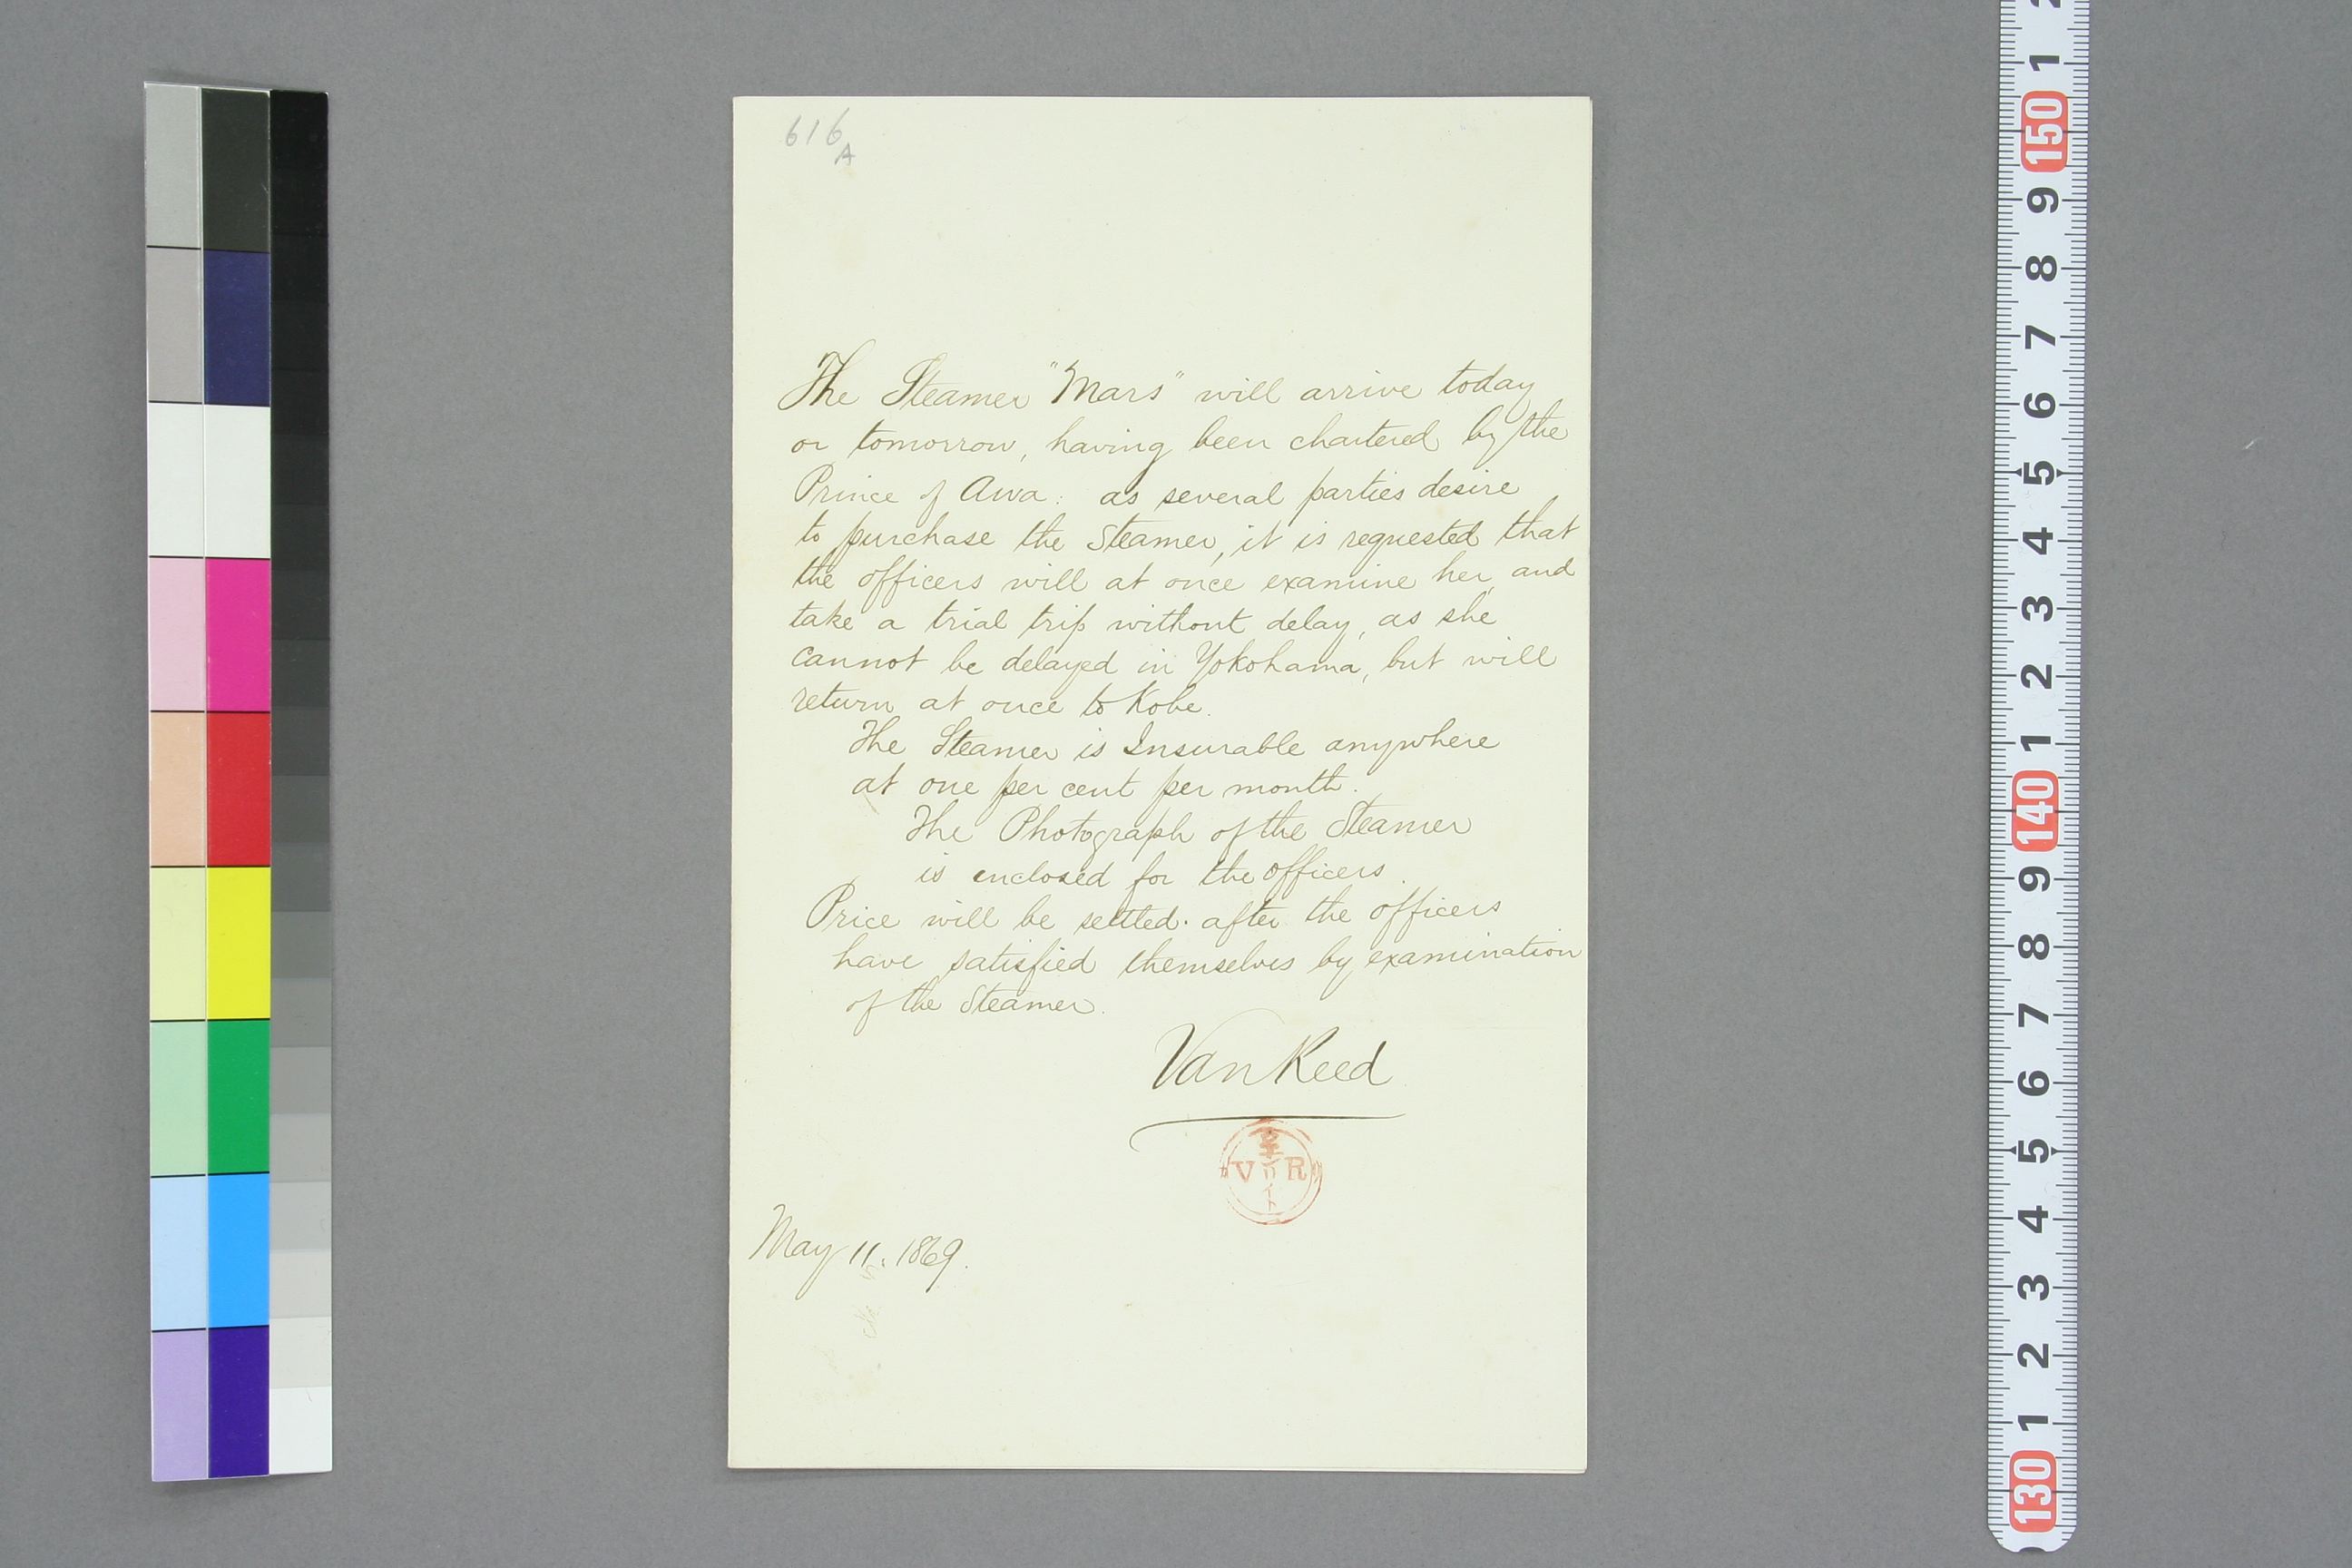 616
A
The Steamer "Mars" will arrive today
or tomorrow, having been chartered by the
Prince of Awa: as several parties desire
to purchase the Steamer, it is requested that
the officers will at once examine her, and
take a trial trip without delay, as she
cannot be delayed in Yokohama, but will
return at once to Kobe.
The Steamer is Insurable anywhere
at one per cent per month.
The Photograph of the Steamer
is enclosed for the officers.
Price will be settled. after the officers
have satisfied themselves by examination
of the Steamer.
Van Reed
V R
May 11. 1869.
2
1
150
9
8
7
6
5
4
3
2
1
140
9
8
7
6
5
4
3
2
1
130